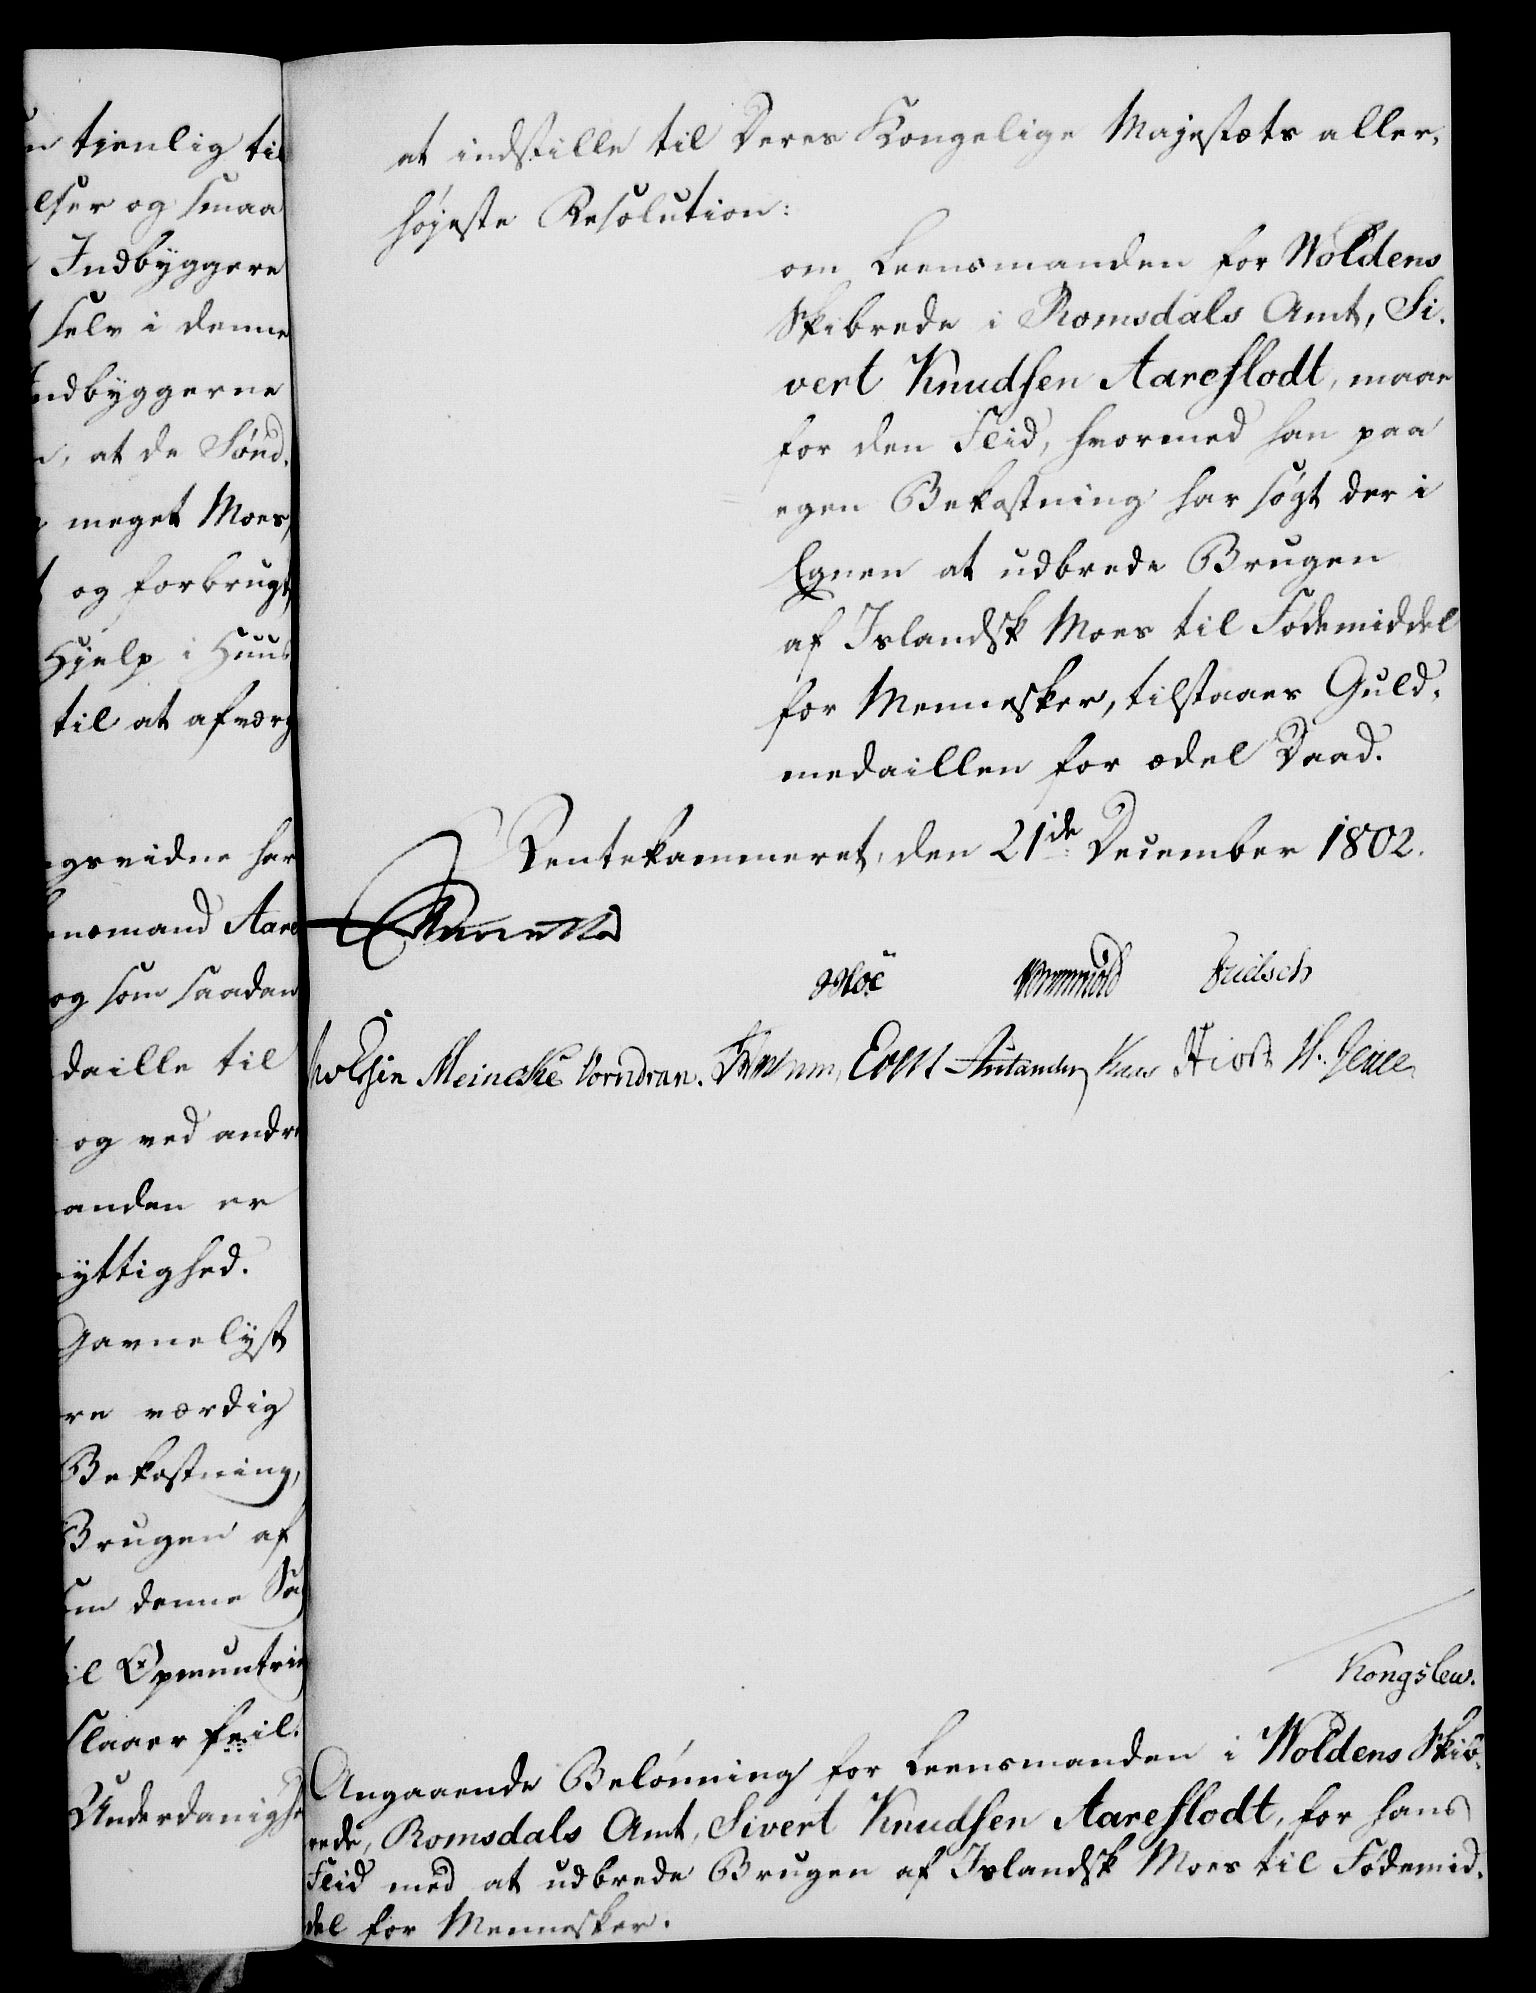 tienlig til
elser og smaa
Indbyggere
selv i denne
Indbyggerne
at de Sønd.
meget Moes,
og forbrugt,
Hjelp i Huus
til at afværg
gsvidne har
ensmand Aare
og som saadan
daille til
og ved andre
anden er
yttighed.
Gavnelyst
re værdig
Bekostning,
Brugen af
denne Sag
til Opmuntrin
slaaer feil.
Underdanigh
at indstille til Deres Kongelige Majestæts aller-
højeste Resolution:
om Leensmanden for Woldens
Skibrede i Romsdals Amt, Si-
vert Knudsen Aareflodt, maae
for den Fliid, hvormed han paa
egen Bekostning har søgt der i
Egnen at udbrede Brugen
af Islandsk Moes til Fødemiddel
for Mennesker, tilstaaes Guld-
medaillen for ædel Daad.
Rentekammeret, den 21de December 1802.
Wormskiold
Meincke Vorndran. Kaas Hiort
Kongslew.
Angaaende Belønning for Leensmanden i Woldens Skib-
rede, Romsdals Amt, Sivert Knudsen Aareflodt, for hans
Fliid med at udbrede Brugen af Islandsk Moes til Fødemid-
del for Mennesker.